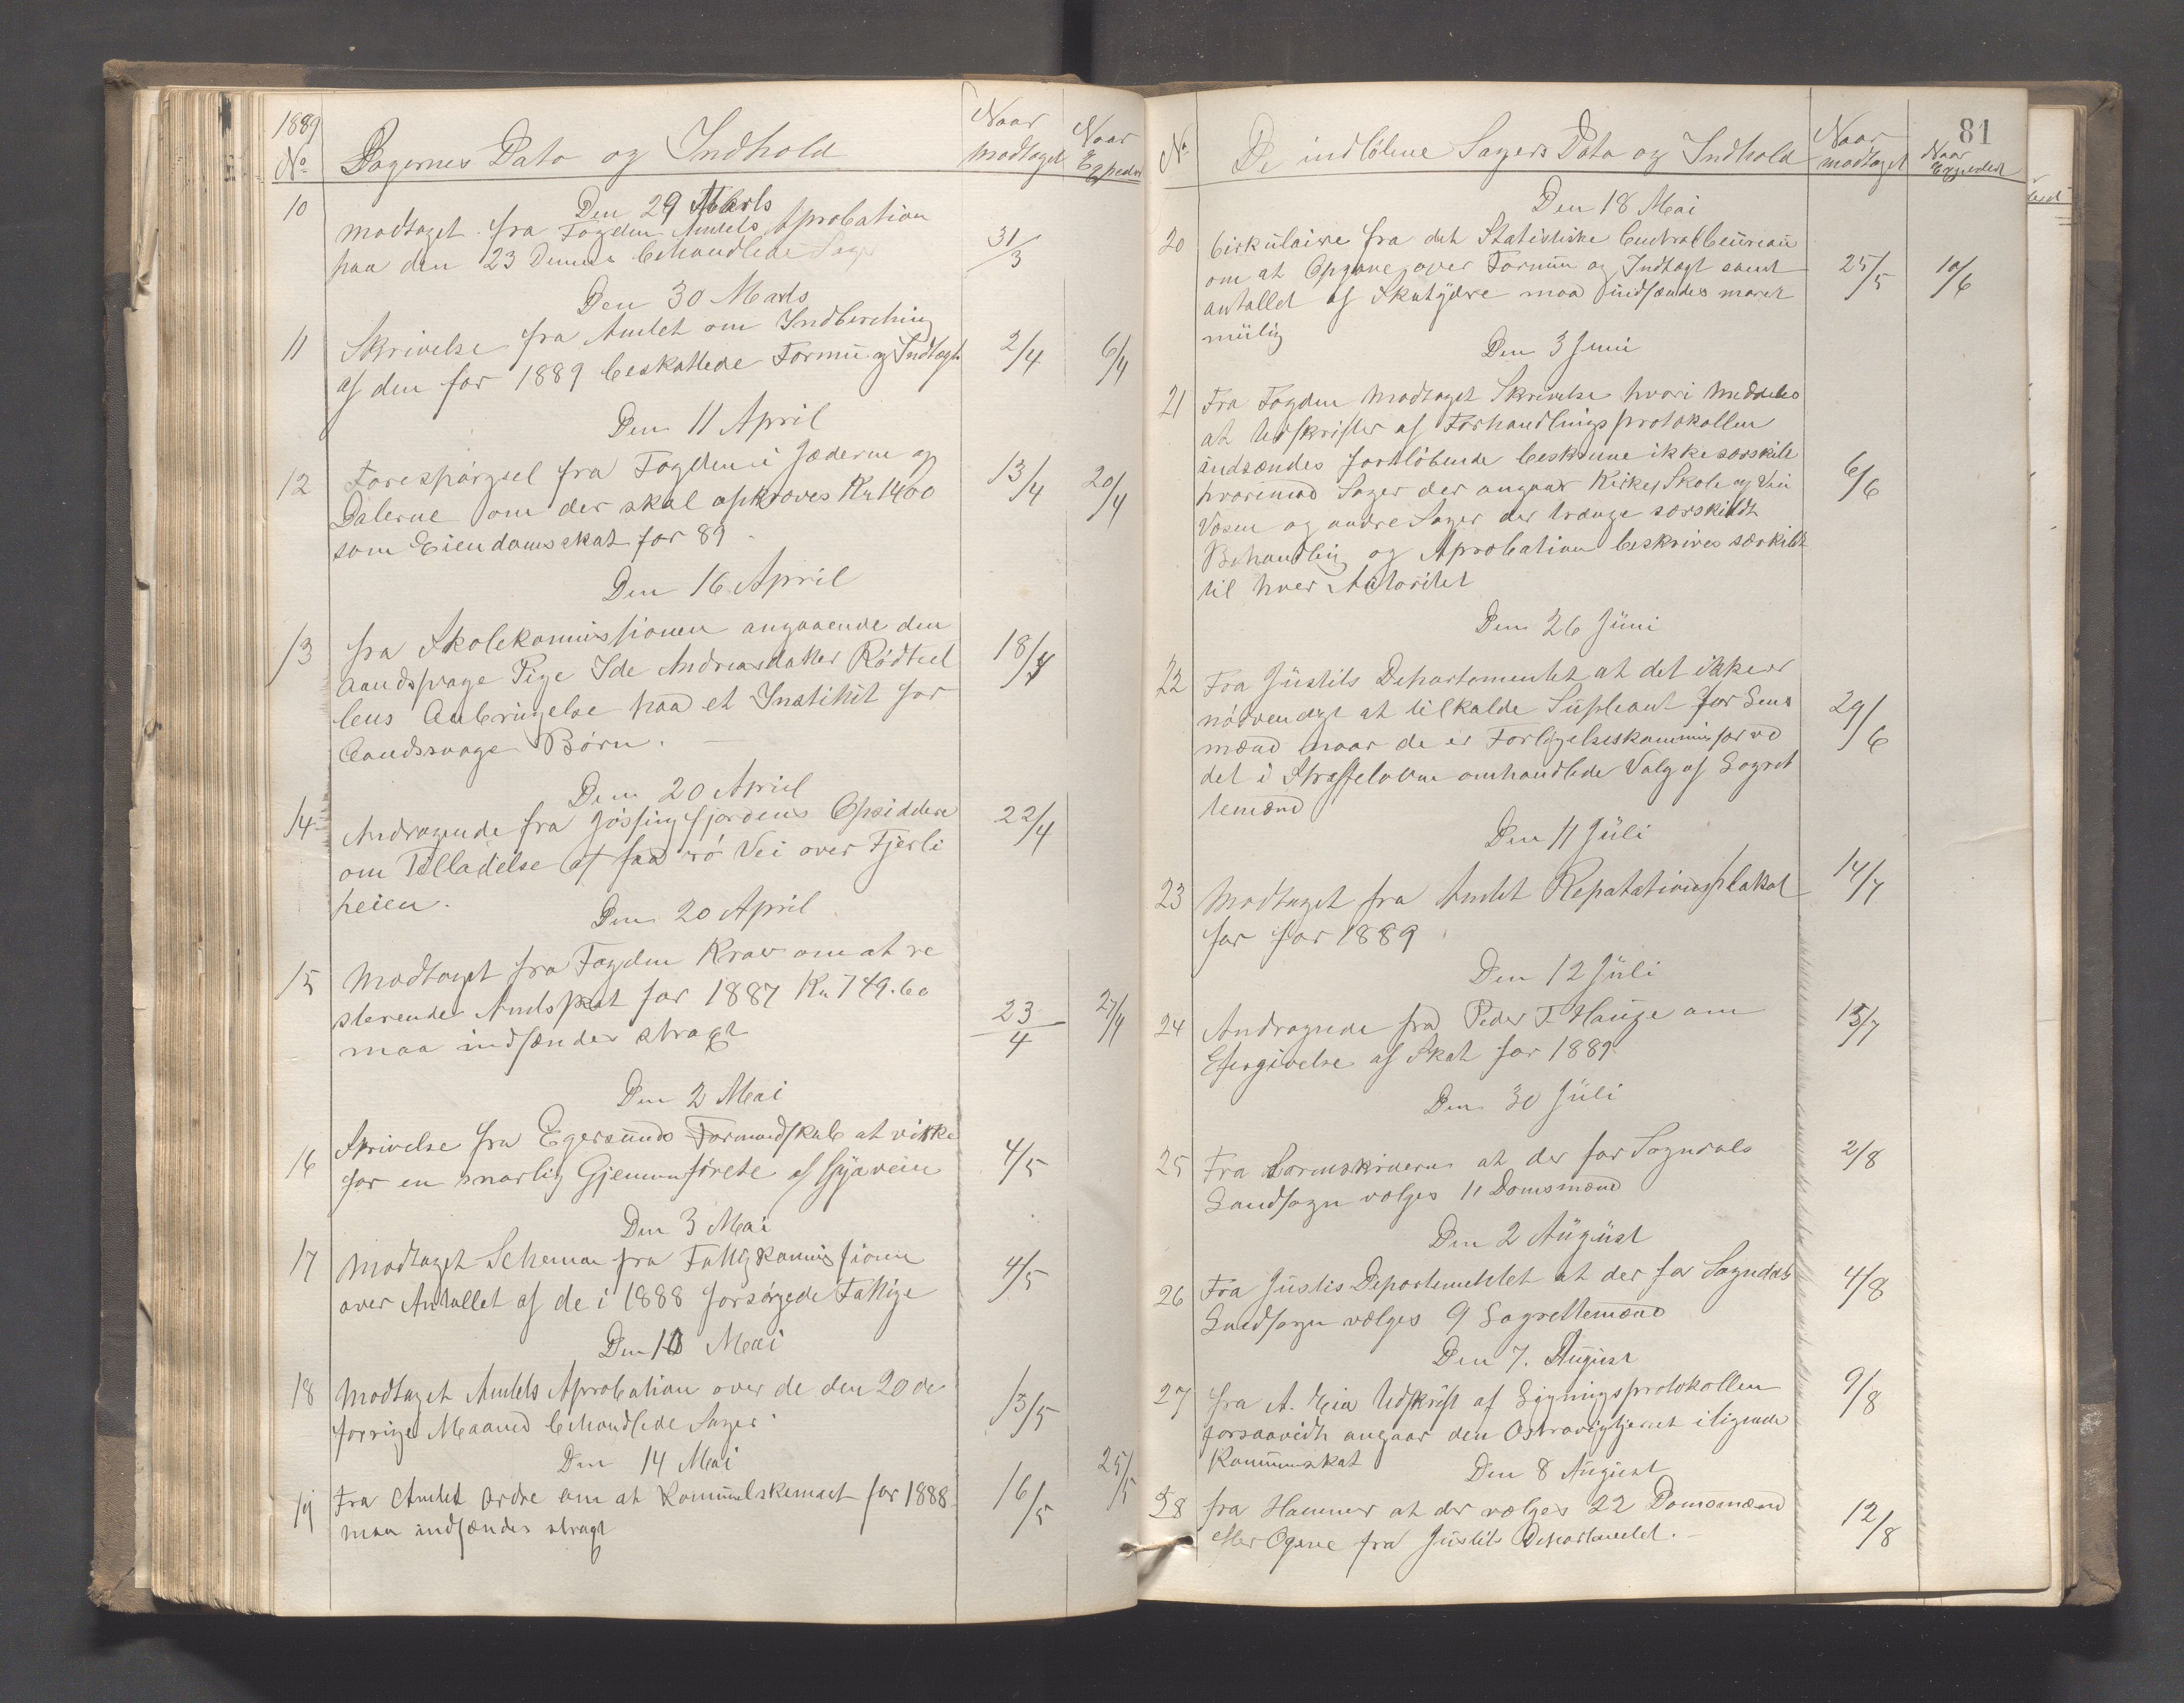 1889
No Sagernes Dato og Indhold Naar modtaget Naar Expedert
Den 29 Marts
10 modtaget fra Fogden Amtets Aprobation
paa den 23 Dennes behandlede Sager 31/3
Den 30 Marts
11 Skrivelse fra Amtet om Indberetning
af den for 1889 beskattede Formue og Indtægt 2/4 6/4
Den 11 April
12 Forespørgsel fra Fogden i Jæderen og
Dalerne om der skal afkræves Kr 1400 13/4 20/4
som Eiendomsskat for 89
Den 16 April
13 fra Skolekommissionen angaaende den
aandssvage Pige Ide Andreasdatter Rødtvet 18/4
lens Anbringelse paa et Institut for
Aandssvage Børn.
Den 20 April
14 Andragende fra Jøssingfjordens Opsiddere 22/4
om Tilladelse at faa Vei over Fjerli
heien.
Den 20 April
15 Modtaget fra Fogden Krav om at re
sterende Amtsskat for 1887 Kr 749.60 23/4 27/4
maa indsændes stragt
Den 2 Mai
16 Skrivelse fra Egersunds Formandskab at virke
for en snarlig Gjennemførelse af Gyaveien 4/5
Den 3 Mai
17 Modtaget Schema fra Fattigkommissionen
over Antallet af de i 1888 forsørgede Fattige 4/5
Den 10 Mai
18 Modtaget Amtets Aprobation over de den 20de
forrige Maaned behandlede Sager 13/5
Den 14 Mai
19 Fra Amtet Ordre om at Kommuneskemaet for 1888 16/5 25/5
maa indsændes stragt
81
No De indløbne Sagers Dato og Indhold Naar modtaget Naar Expedert
Den 18 Mai
20 Cirkulaire fra det Statistiske Centralbeureau
om at Opgave over Formue og Indtægt samt 25/5 10/6
antallet af Skatydere maa indsændes snarest
mulig
Den 3 Juni
21 Fra Fogden Modtaget Skrivelse hvori Meddeles
at Udskrifter af Forhandlingsprotokollen
indsændes fortløbende beskrevne ikke særskilt
hvorimod Sager der angaar Kirke, Skole og Vei 6/6
Væsen og andre Sager der trænge særskildt
Behandling og Aprobation beskrives særskildt
til hver Autoritet
Den 26 Juni
22 Fra Justits Departementet at det ikke er
nødvendigt at tilkalde Supleant for Lens 29/6
mænd naar de er Forligelseskommissær ved
det i Straffeloven omhandlede Valg af Lagret
temænd
Den 11 Juli
23 Modtaget fra Amtet Repatationsplakat 14/7
for for 1889
Den 12 Juli
24 Andragende fra Peder T. Hauge om 15/7
Efergivelse af Skat for 1889
Den 30 Juli
25 Fra Sorenskriveren at der for Sogndals 2/8
Landsogn vælges 11 Domsmænd
Den 2 August
26 Fra Justis Departementet at der for Sogndals 4/8
Landsogn vælges 9 Lagrettemænd
Den 7. August
27 fra A. Eia Udskrift af Ligningsprotokollen 9/8
forsaavidt angaar den ilignede
Kommuneskat
Den 8 August
28 fra Hammer at der vælges 22 Domsmænd 12/8
efter Ogave fra Justits Departementet.